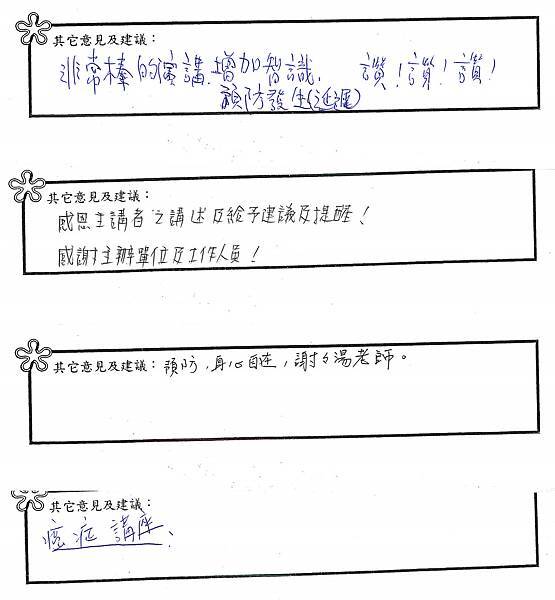 其它意見及建議：
非常棒的演講.增加智識. 讚！讚！讚！
預防發生(延遲)
其它意見及建議：
感恩主講者之講述及給予建議及提醒！
感謝主辦單位及工作人員！
其它意見及建議：預防，身心自在，謝謝湯老師。
其它意見及建議：
癌症講座.